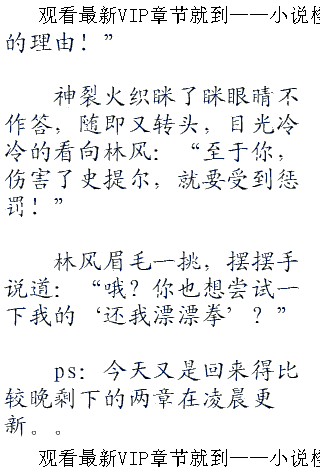 观看最新VIP章节就到——小说
的理由！”
神裂火织眯了眯眼睛不
作答，随即又转头，目光冷
冷的看向林风：“至于你，
伤害了史提尔，就要受到惩
罚！”
林风眉毛一挑，摆摆手
说道：“哦？你也想尝试一
下我的‘还我漂漂拳’？”
ps：今天又是回来得比
较晚剩下的两章在凌晨更
新。。
观看最新VIP章节就到——小说